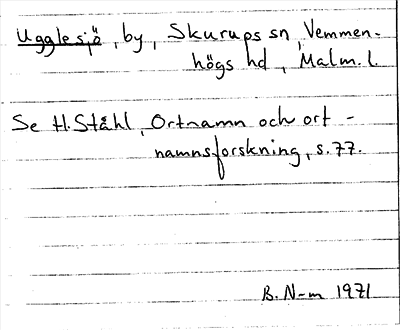 Ugglesjö, by, Skurups sn, Vemmen-
högs hd, Malm. l.
Se H. Ståhl, Ortnamn och ort-
namnsforskning, s. 77.
B. N-m 1971